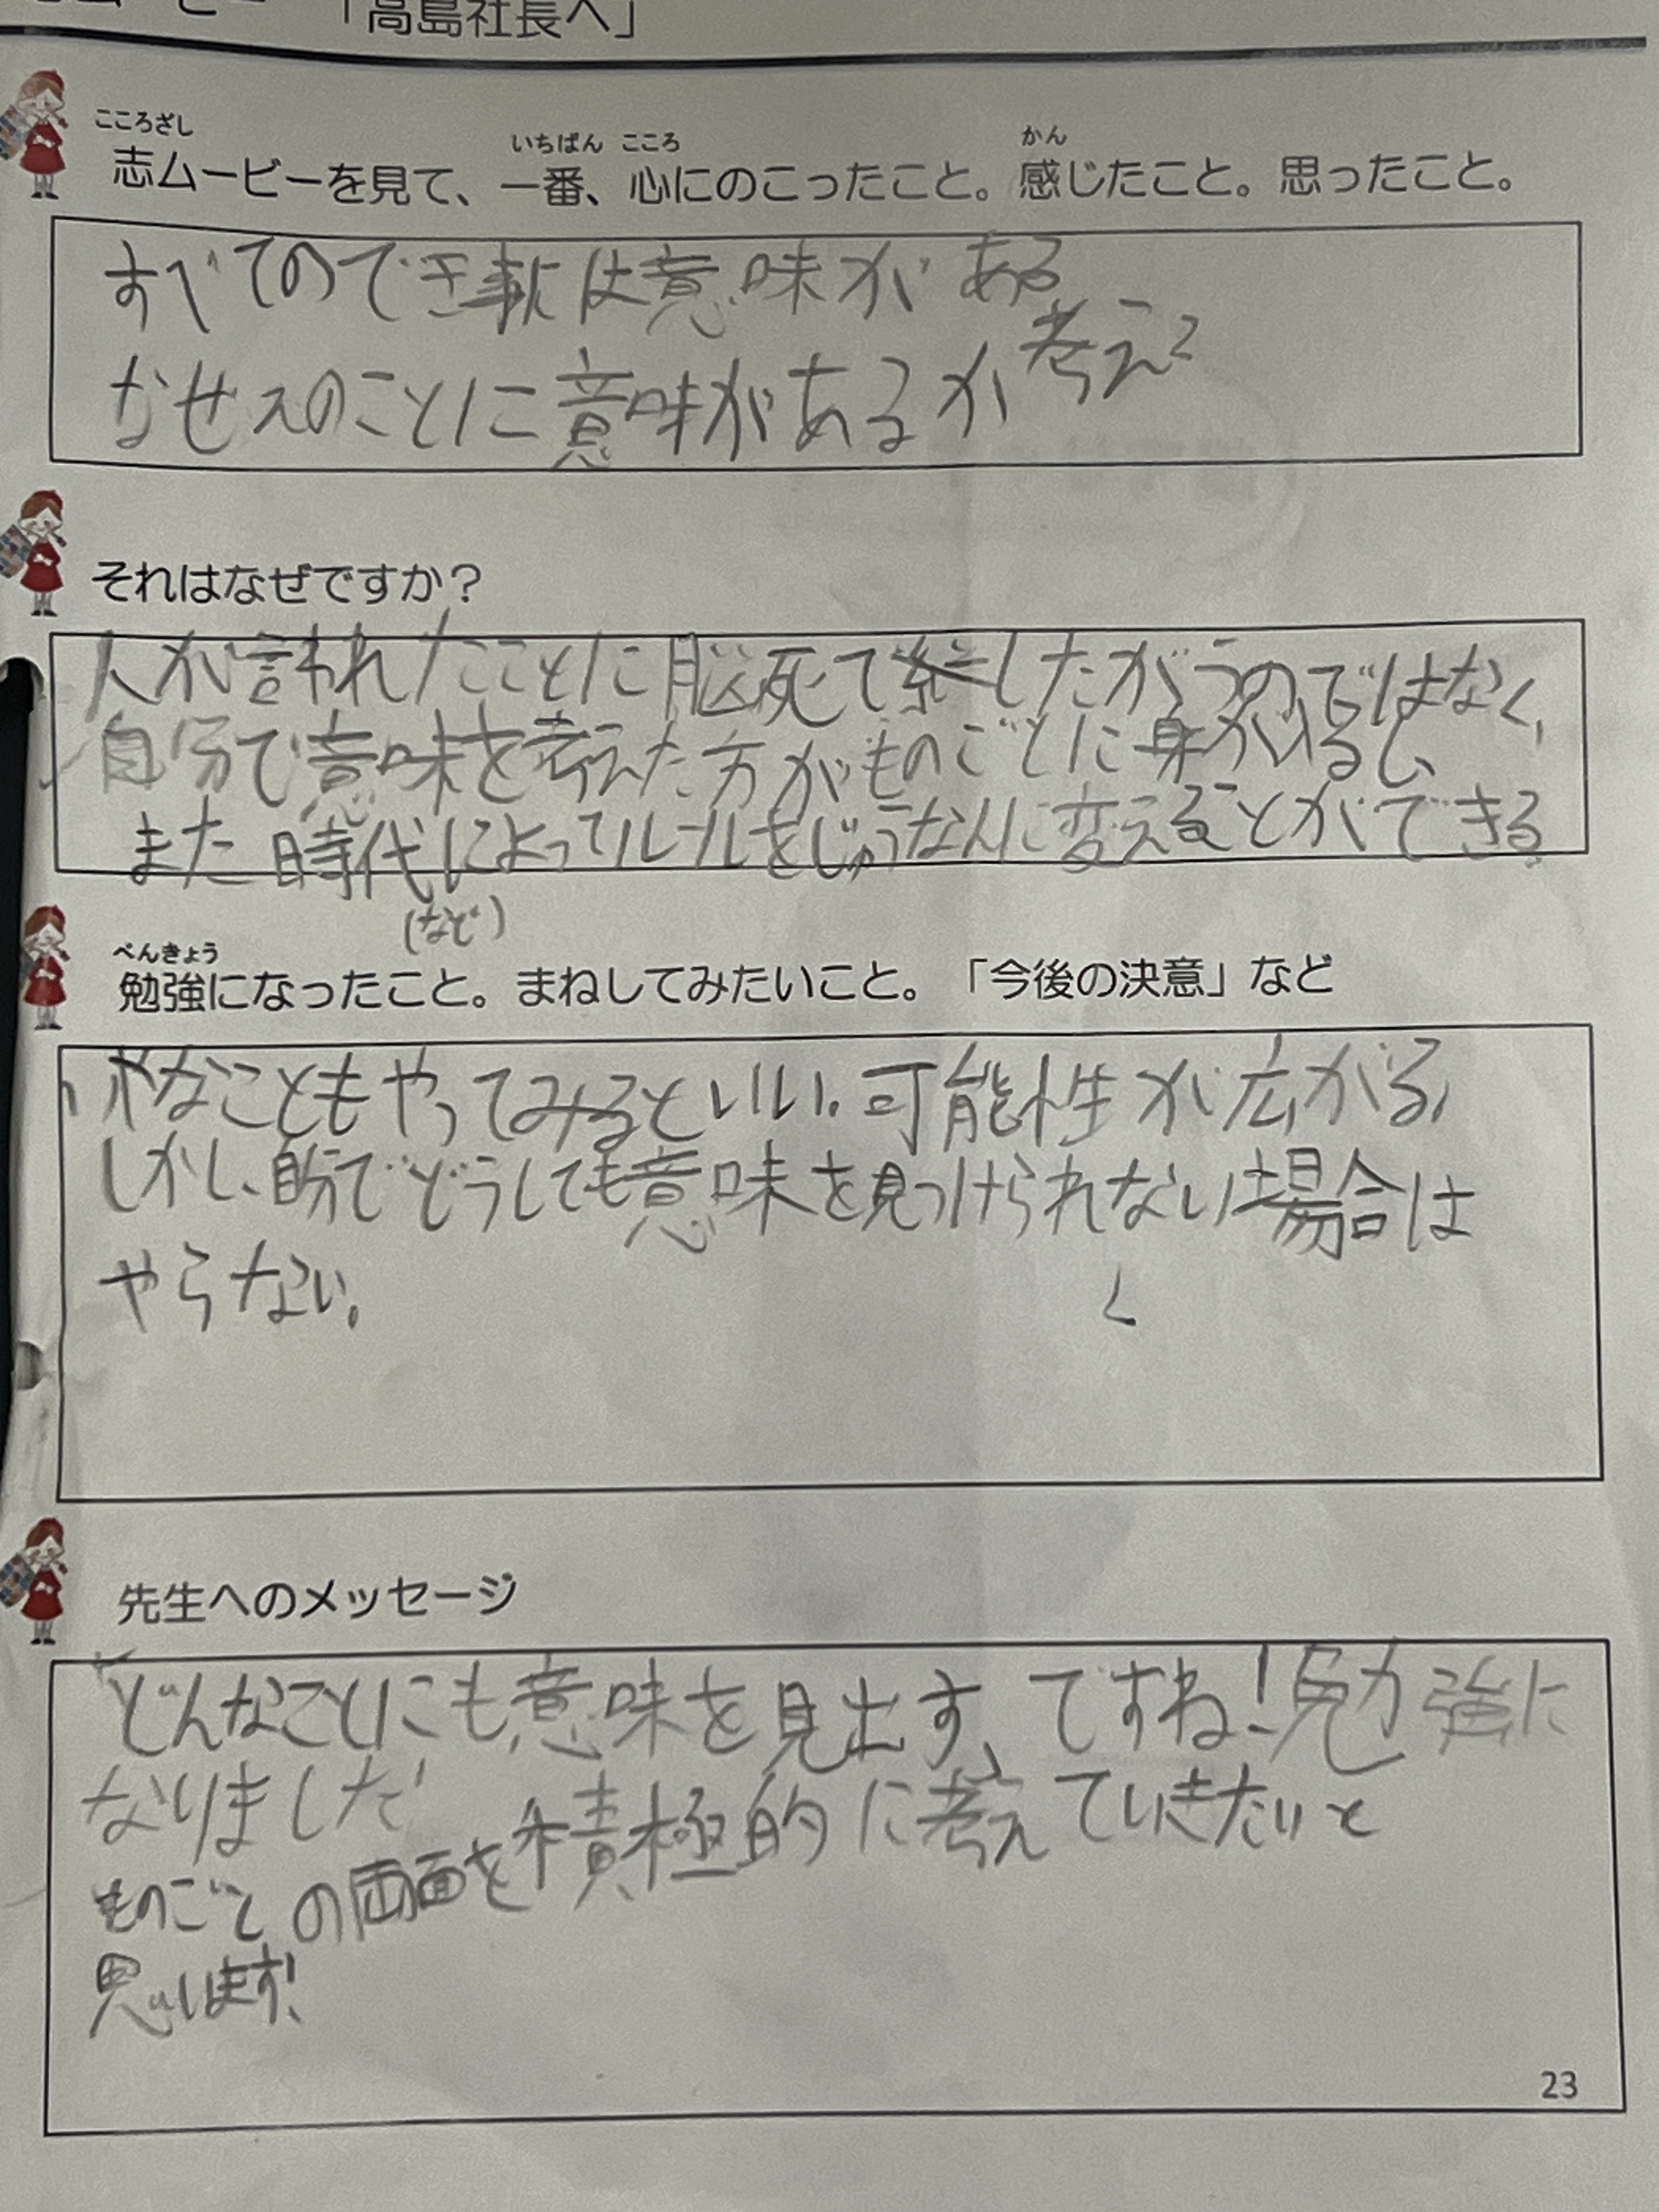 「高島社長へ」
こころざし いちばん こころ かん
志ムービーを見て、一番、心にのこったこと。感じたこと。思ったこと。
すべてのでき事には意味がある
なぜそのことに意味があるか考える
それはなぜですか？
人が言われたことに脳死でしたがうのではなく、
自分で意味を考えた方がものごとに身がいるし、
また時代によってルールをじゅうなんに変えることができる
(など)
べんきょう
勉強になったこと。まねしてみたいこと。「今後の決意」など
いやなこともやってみるといい。可能性が広がる。
しかし、自分でどうしても意味を見つけられない場合は
やらない。
く
先生へのメッセージ
どんなことにも意味を見出す、ですね!勉強に
なりました
ものごとの両面を積極的に考えていきたいと
思います!
23